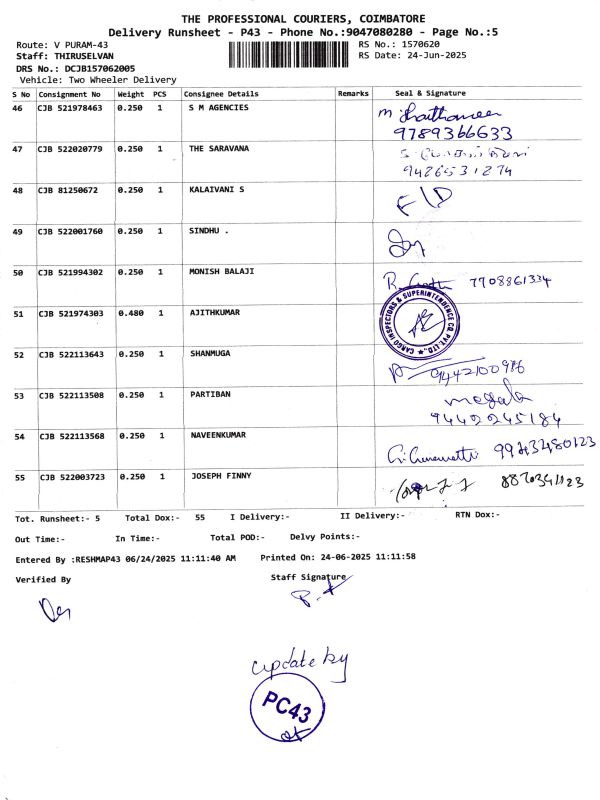 THE PROFESSIONAL COURIERS, COIMBATORE
Delivery Runsheet - P43 - Phone No.:9047080280 - Page No.:5
Route: V PURAM-43 RS No.: 1570620
Staff: THIRUSELVAN RS Date: 24-Jun-2025
DRS No.: DCJB157062005
Vehicle: Two Wheeler Delivery
S No Consignment No Weight PCS Consignee Details Remarks Seal & Signature
46 CJB 521978463 0.250 1 S M AGENCIES
9789366633
47 CJB 522020779 0.250 1 THE SARAVANA
9426531274
48 CJB 81250672 0.250 1 KALAIVANI S
49 CJB 522001760 0.250 1 SINDHU .
50 CJB 521994302 0.250 1 MONISH BALAJI 7708861334
51 CJB 521974303 0.480 1 AJITHKUMAR CARGO INSPECTORS & SUPERINTENDENCE CO. PVT. LTD.
52 CJB 522113643 0.250 1 SHANMUGA
9442100916
53 CJB 522113508 0.250 1 PARTIBAN magala
9442245184
54 CJB 522113568 0.250 1 NAVEENKUMAR 9943480123
55 CJB 522003723 0.250 1 JOSEPH FINNY
Tot. Runsheet:- 5 Total Dox:- 55 I Delivery:- II Delivery:- RTN Dox:-
Out Time:- In Time:- Total POD:- Delvy Points:-
Entered By :RESHMAP43 06/24/2025 11:11:40 AM Printed On: 24-06-2025 11:11:58
Verified By Staff Signature
update by
PC43